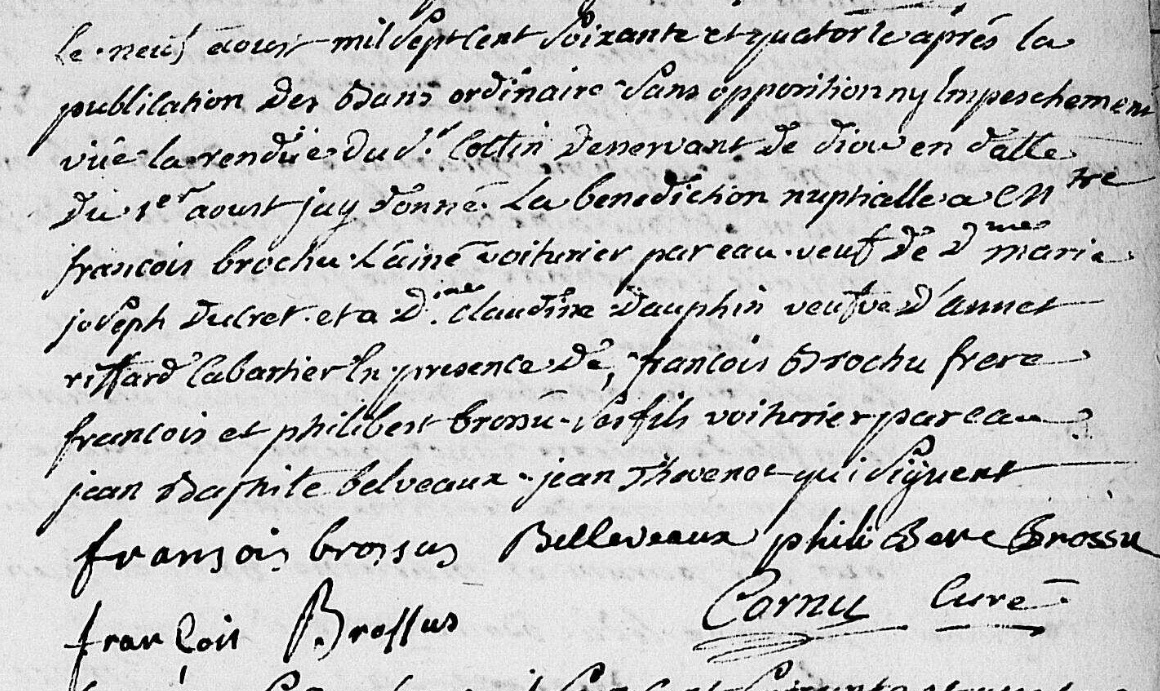 le neuf aoust mil sept cent soixante et quatorze après la
publication des Bans ordinaire sans opposition ny Impeschement
vüe la rendüe du Sr. Cottin desservant de diou en datte
du 1er aoust jay donné La benediction nuptialle a entre
francois brochu L'ainé voiturier par eau veuf de Dme marie
joseph Ducret et a Dme. claudine Dauphin veufve D'annet
riffard Cabartier En presence de francois Brochu frere
francois et philibert brossu ses fils voiturier par eau
jean Baptiste belveaux jean Thevenot qui signent
fransois brossus Belleveaux philiBere Brossu
francois Brossus Cornu Curé